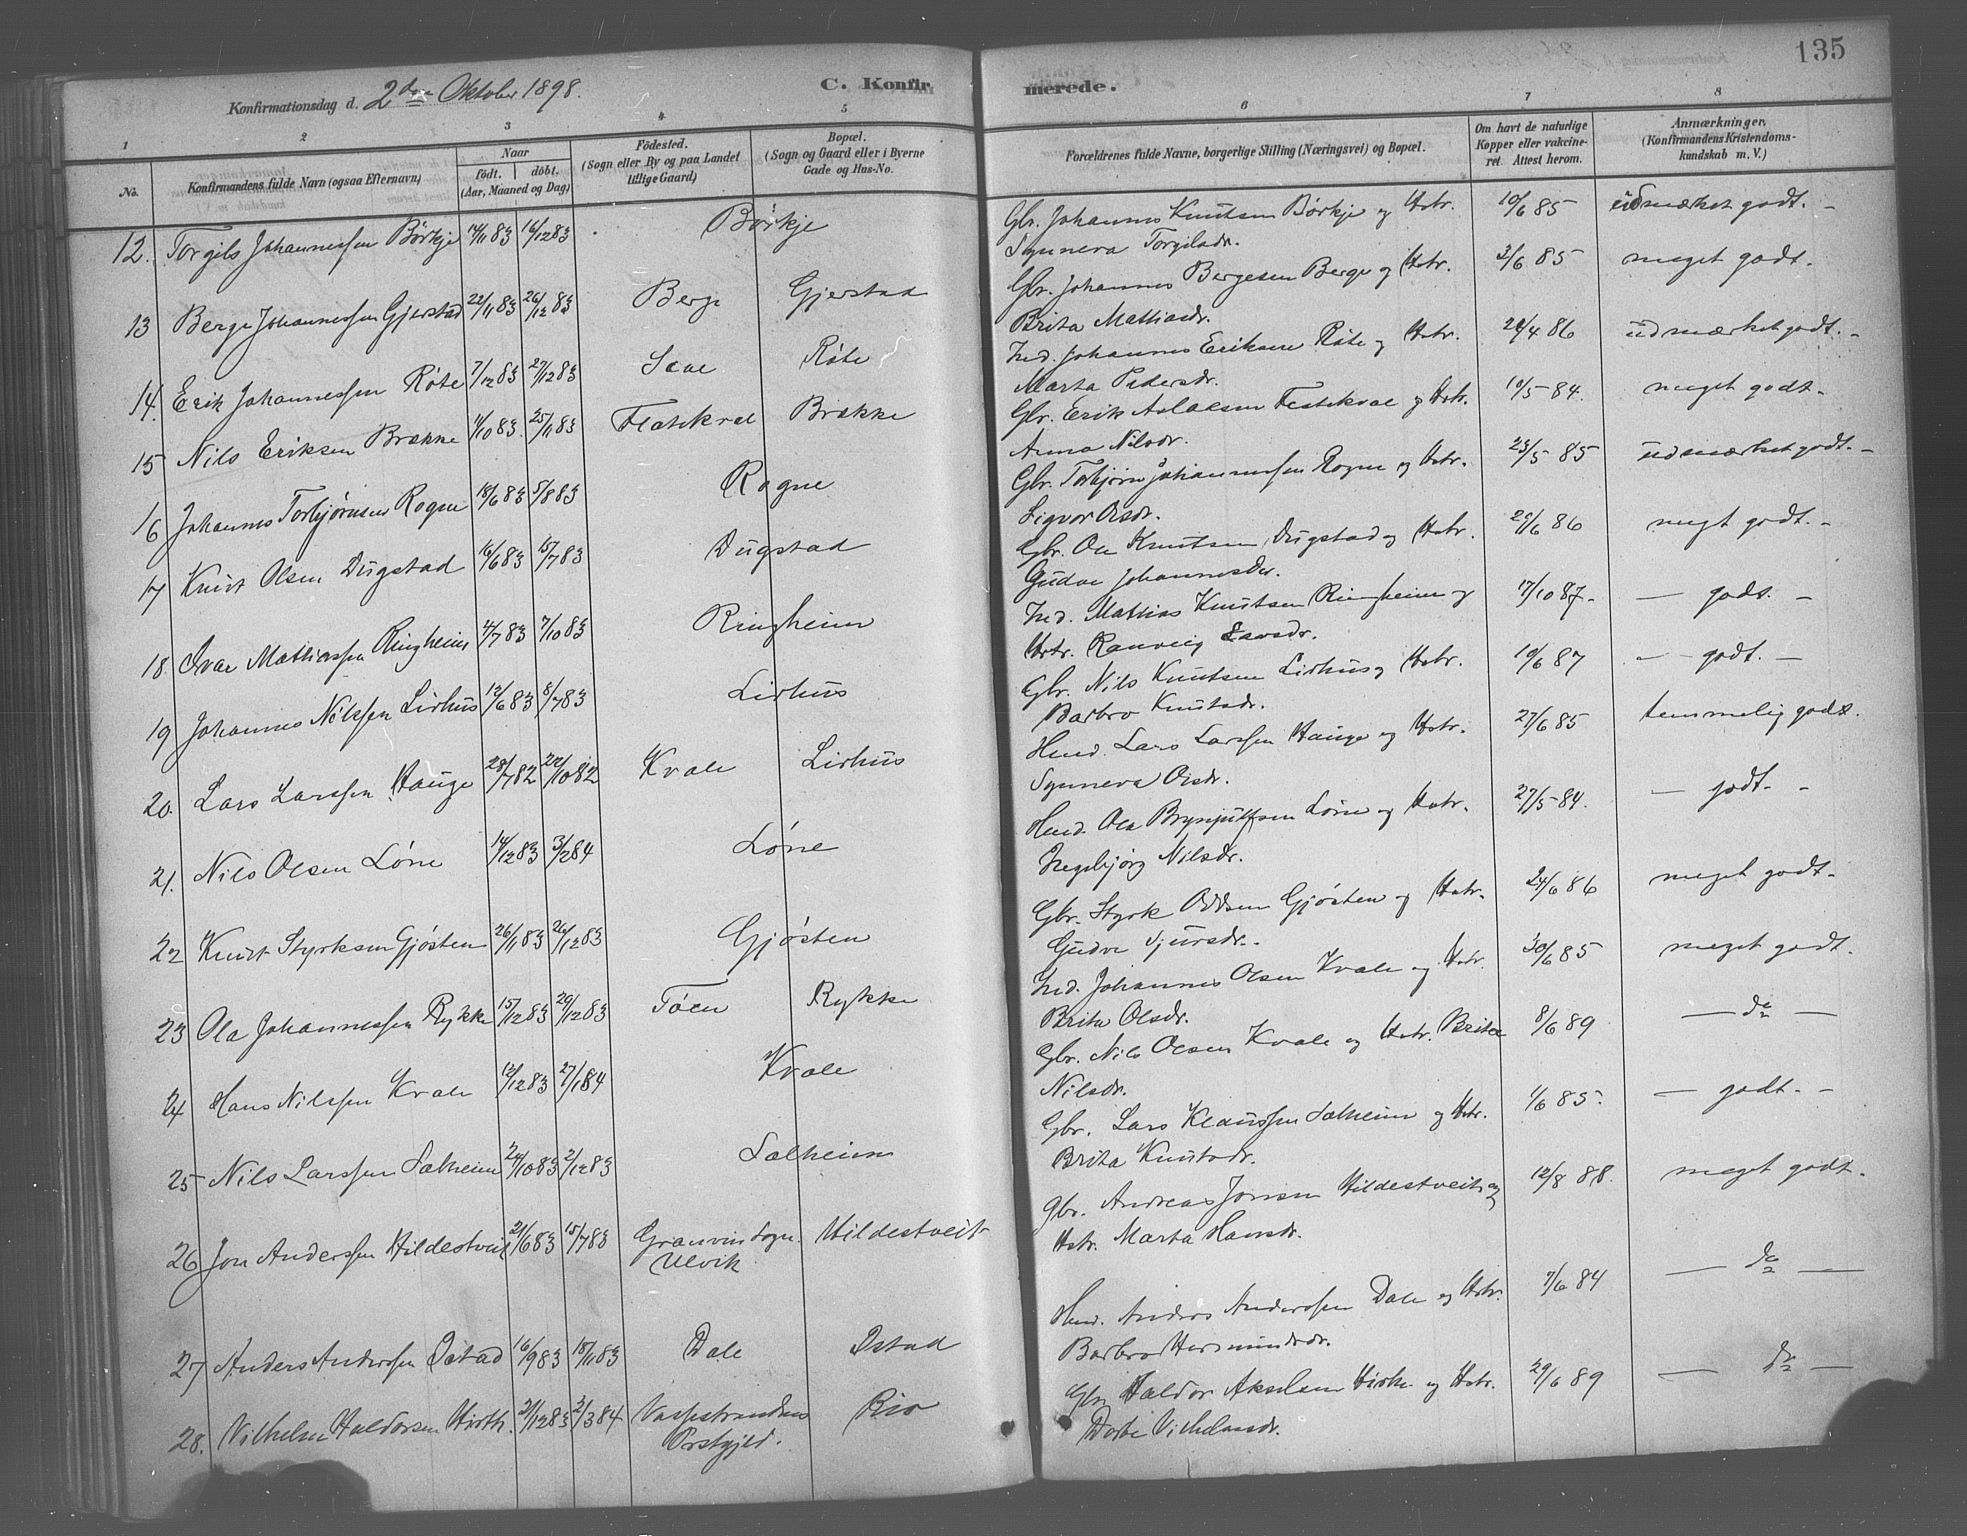 135
Konfirmationsdag d. 2den Oktober 1898.
C. Konfirmerede.
1 2 3 4 5 6 7 8
No.
Konfirmandens fulde Navn (ogsaa Efternavn)
Naar
födt. döbt.
(Aar, Maaned og Dag)
Födested.
(Sogn eller By og paa Landet
tillige Gaard)
Bopæl.
(Sogn og Gaard eller i Byerne
Gade og Hus-No.
Forældrenes fulde Navne, borgerlige Stilling (Næringsvei) og Bopæl.
Om havt de naturlige
Kopper eller vakcine-
ret. Attest herom.
Anmærkninger.
(Konfirmandens Kristendoms-
kundskab m. V.)
12. Torgils Johannessen Börkje 14/11 83 16/12 83 Börkje Gbr. Johannes Knutsen Börkje og Hstr. 10/6 85 udmærket godt. –
Synneva Torgilsdr.
13 Berge Johannessen Gjerstad 22/11 83 26/12 83 Berge Gjerstad Gbr. Johannes Bergesen Berge og Hstr. 3/6 85 meget godt.
Brita Mattiasdr.
14. Erik Johannessen Röte 7/12 83 27/12 83 Saue Röte Ind. Johannes Eriksen Röte og Hstr. 24/4 86 udmærket godt. –
Marta Pedersdr.
15 Nils Eriksen Brække 14/10 83. 25/11 83 Flatekval Brække Gbr. Erik Aslaksen Flatekval og Hstr. 10/5 84. meget godt –
Anna Nilsdr.
16 Johannes Torbjörnsen Rogne 18/6 83 5/8 83 Rogne Gbr. Torbjörn Johannessen Rogne og Hstr. 23/5 85 udmærket godt. –
Sigvor Olsdr.
17 Knut Olsen Dugstad 16/6 83 15/7 83 Dugstad Gbr. Ole Knutsen Dugstad og Hstr. 29/6 86 megt godt. –
Gudve Johannesdr.
18. Ivar Mattiassen Ringheim 4/7 83 7/10 83 Ringheim Ind. Mattias Knutsen Ringheim og 17/10 87. – – godt. –
Hstr. Ranveig Larsdr.
19 Johannes Nilssen Lirhus 12/6 83 8/7 83 Lirhus Gbr. Nils Knutsen Lirhus og Hstr. 10/6 87 – – godt. –
Barbro Knutsdr.
20. Lars Larssen Hauge 28/7 82 22/10 82 Kvale Lirhus Hmd. Lars Larssen Hauge og Hstr. 27/6 85 temmelig godt.
Synneva Olsdr.
21. Nils Olsen Löne 14/12 83 3/2 84 Löne Hmd. Ola Brynjulfsen Löne og Hstr. 27/5 84. – godt. –
Ingebjörg Nilsdr.
22 Knut Styrksen Gjösten 26/11 83 26/12 83 Gjösten Gbr. Styrk Oddsen Gjösten og Hstr. 24/6 86 meget godt –
Gudve Sjursdr.
23 Ola Johannessen Rykke 15/12 83 29/12 83 Töen Rykke Ind. Johannes Olsen Kvale og Hstr. 30/6 85 meget godt.
Brita Olsdr.
24 Hans Nilssen Kvale 12/12 83 27/1 84 Kvale Gbr. Nils Olsen Kvale og Hstr. Brita 8/6 89 — do —
Nilsdr.
25 Nils Larssen Sælheim 24/10 83 2/12 83 Sælheim Gbr. Lars Klaussen Sælheim og Hstr. 1/6 85. — godt. –
Brita Knutsdr.
26 Jon Anderssen Hildestveit 21/6 83 15/7 83 Granvin Sogn. Hildestveit Gbr. Andreas Jonsen Hildestveit og 12/8 88. meget godt.
Ulvik Hstr. Marta Hansdr.
27 Anders Anderssen Istad 16/9 83 18/11 83 Dale Istad Hmd. Anders Anderssen Dale og Hstr. 7/6 84 — do —
Barbro Hermundsdr.
28. Vilhelm Haldorsen Hirth. 21/12 83 2/3 84 Vossestrandens Rio Gbr. Haldor Akselsen Hirth og Hstr. 29/6 89 — do —
Prstgjeld. Dorte Vilhelmsdr.